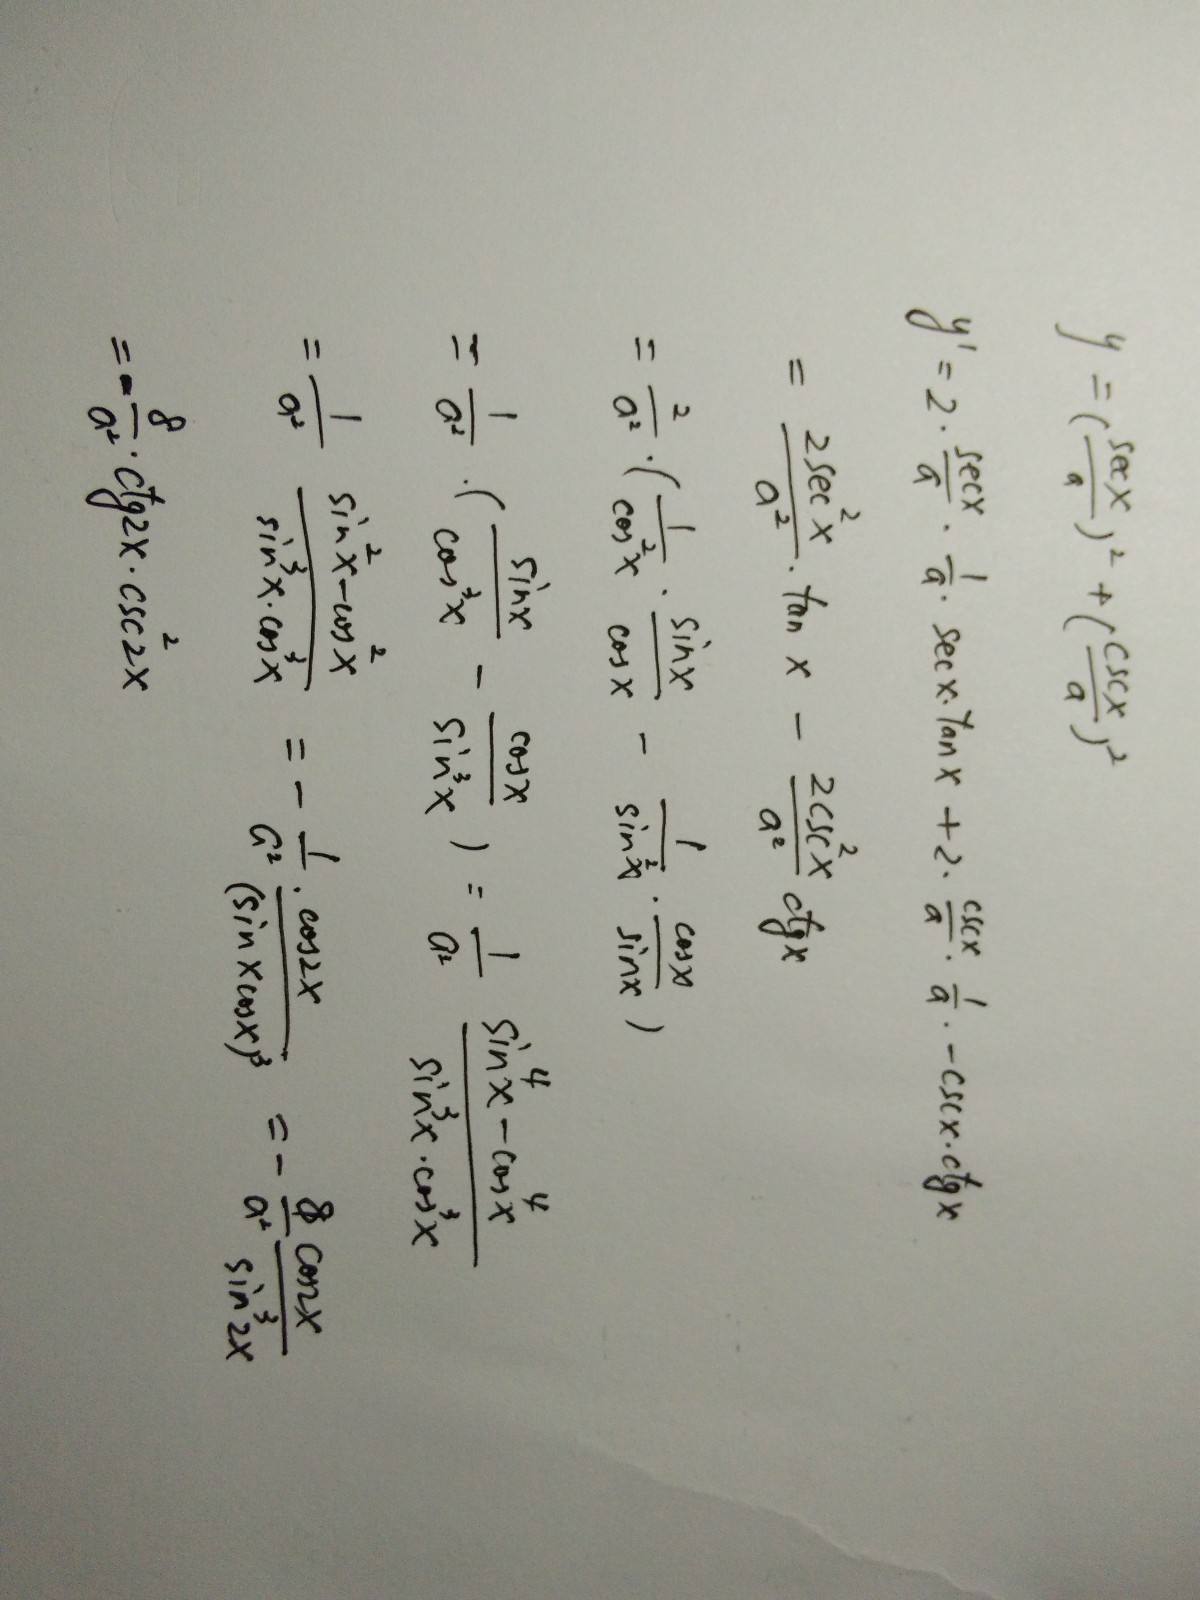 y = (secx/a)² + (cscx/a)²
y' = 2 · secx/a · 1/a · secx · tanx + 2 · cscx/a · 1/a · -cscx · ctgx
= 2sec²x/a² · tan x - 2csc²x/a² ctgx
= 2/a² · (1/cos²x · sinx/cosx - 1/sin²x · cosx/sinx)
= 1/a² · (sinx/cos³x - cosx/sin³x) = 1/a² sin⁴x-cos⁴x/sin³x·cos³x
= 1/a² sin²x-cos²x/sin³x·cos³x = - 1/a² · cos2x/(sinxcosx)³ = - 8/a² cos2x/sin³2x
= - 8/a² · ctg2x · csc²2x